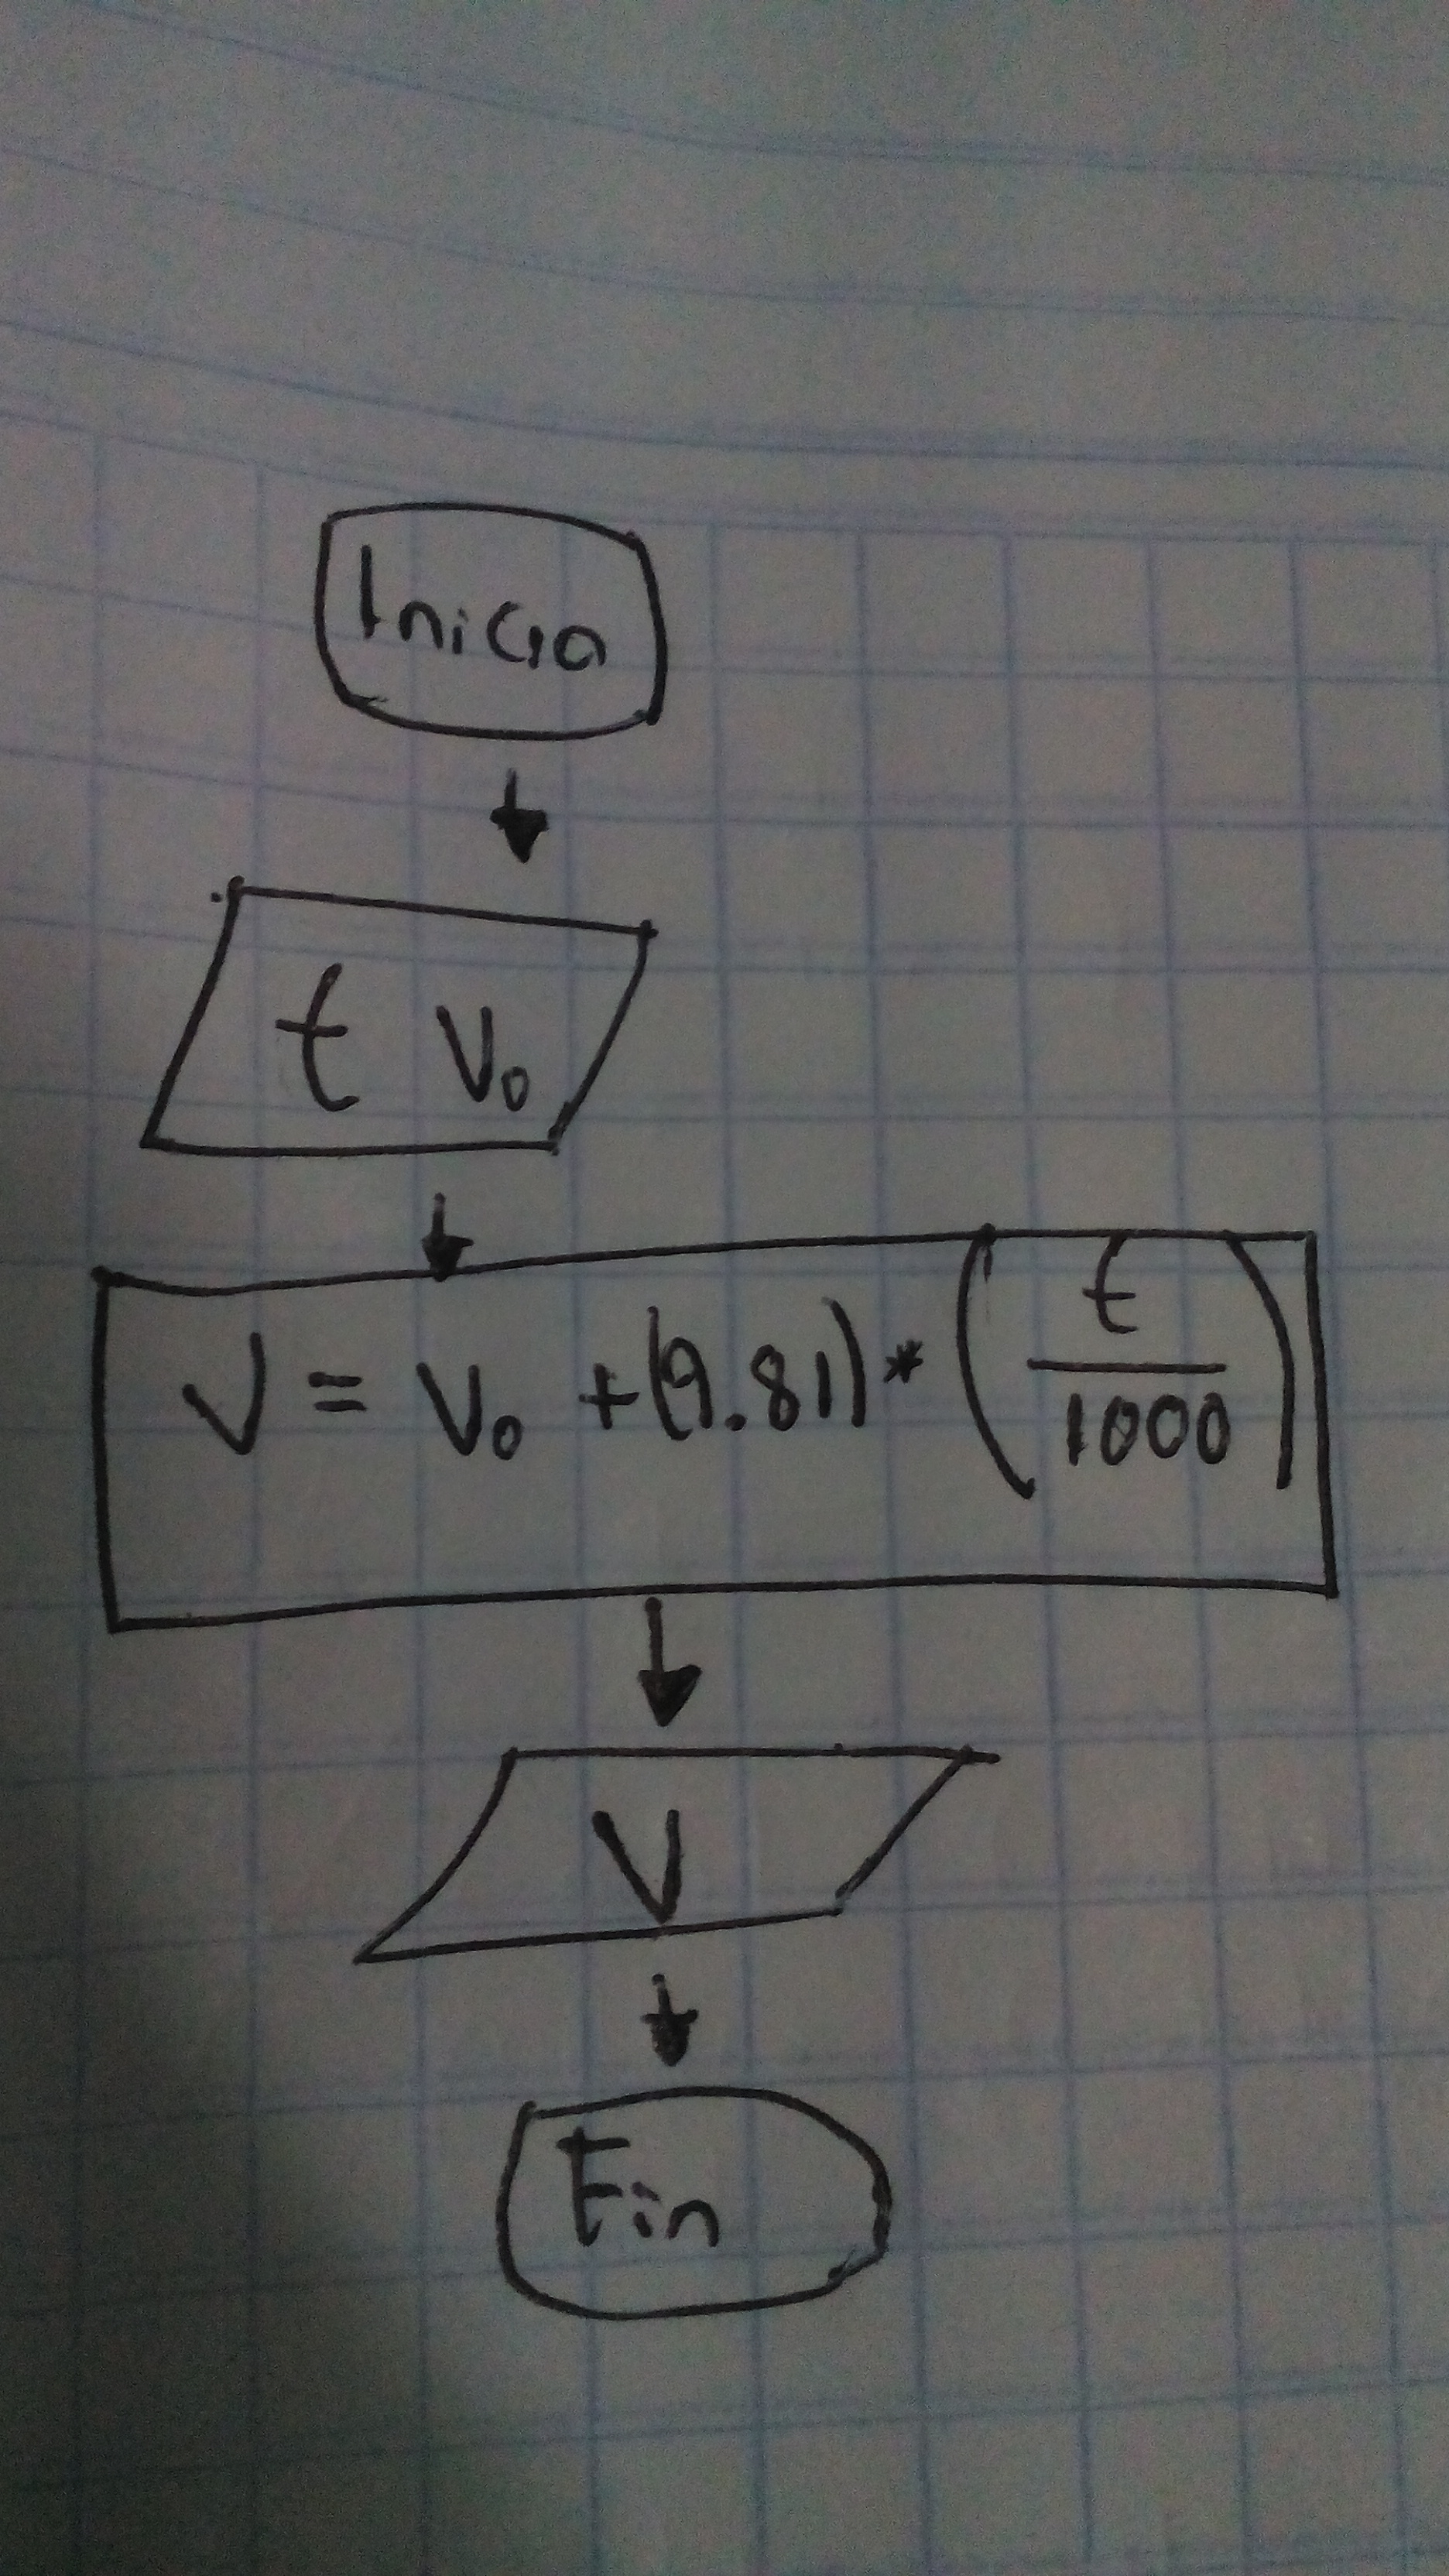 Inicio
t V₀
V = V₀ + (9.81) * (t/1000)
V
Fin